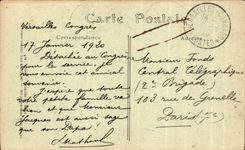 Versailles Congrès
Carte Postale
17 Janvier 1920
Correspondance
Détachée au Congrès
pour le service, je
vous envoie cet amical
souvenir.
J'espère que toute
votre petite famille va
bien et que Monsieur
Jacques est aussi sage
que son Papa!
Monsieur Fonds
Central Télégraphique
(2e Brigade)
103 rue de Grenelle
Paris 7e